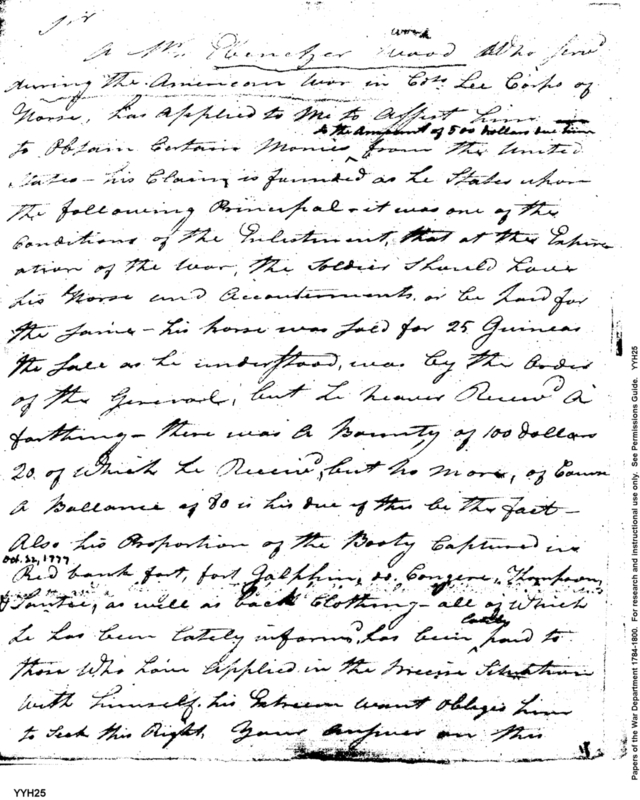 Sir
A Mr. Ebenetzer Wood Who serv'd
during the American War in Cols. Lee Corps of
Horse, has applied to Me to Assist him
to the Amount of 500 dollars due him
to Obtain Certain Monies from the United
States – his Claim, is founded as he States upon
the following Principal – it was one of the
Conditions of the Enlistment, that at the Expir-
ation of the War, the Soldier Should have
his Horse and Accoutrements, or be paid for
the same – his horse was sold for 25 Guineas
the Sale as he understood, was by the Order
of the General, but he neaver Receiv'd A
farthing – there was A Bounty of 100 dollars
20 of Which he Receiv'd, but no more, of Course
A Ballance of 80 is his due if this be the fact –
Also his Proportion of the Booty Captured in
Oct. 22, 1777
Red bank fort, fort Galphin, do Congree, Thompson
Santee, as well as back Clothing – all of Which
he has been lately inform'd, has been paid to
those Who have Applied in the Precise Situation
With himself. his Extreem Want Obliges him
to Seek this Right. Your Answer on this
YYH25
Papers of the War Department 1784-1800. For research and instructional use only. See Permissions Guide. YYH25